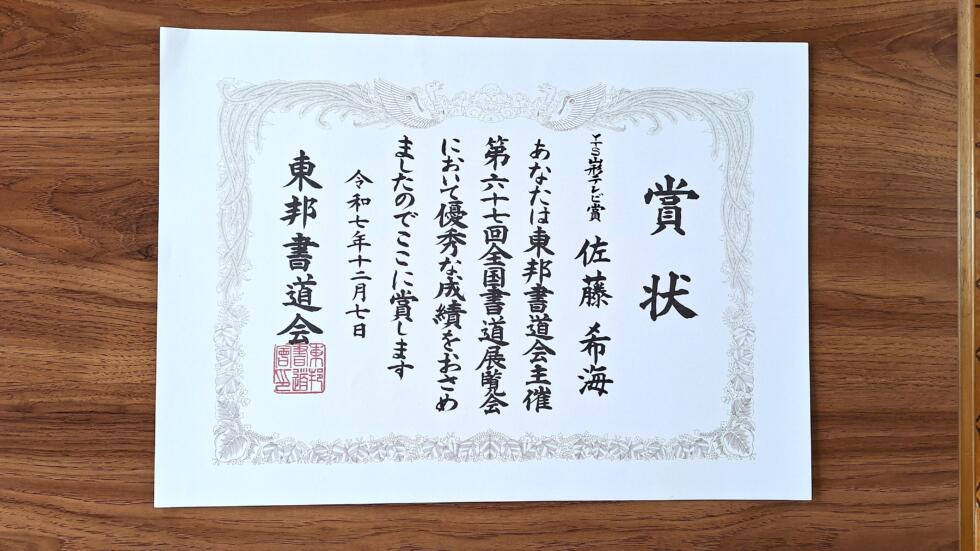 賞状
YTS山形テレビ賞 佐藤 希海
あなたは東邦書道会主催
第六十七回全国書道展覧会
において優秀な成績をおさめ
ましたのでここに賞します
令和七年十二月七日
東邦書道会
東邦書道会印